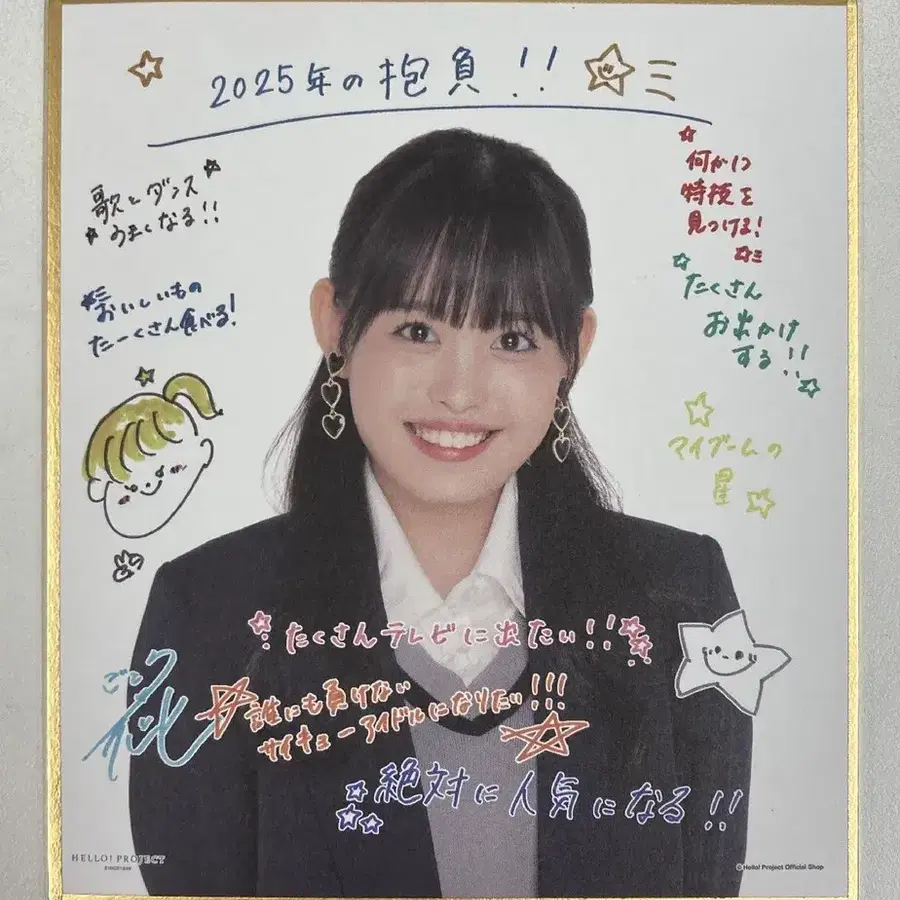 2025年の抱負!!
歌とダンス
うまくなる!!
おいしいもの
たーくさん食べる!
何か1つ
特技を
見つける!
たくさん
お出かけ
する!!
マイブームの
星
たくさんテレビに出たい!!
誰にも負けない
サイキョーアイドルになりたい!!!
絶対に人気になる!!
HELLO! PROJECT
© Hello! Project Official Shop